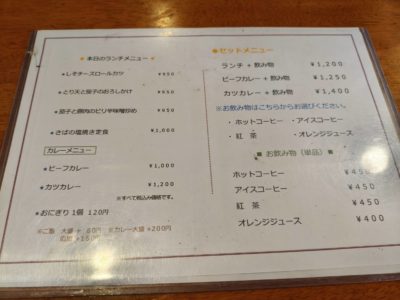 ★ 本日のランチメニュー ★
★しそチーズロールカツ ¥950
★とり天と茄子のおろしかけ ¥950
★茄子と豚肉のピリ辛味噌炒め ¥950
★さばの塩焼き定食 ¥1,000
カレーメニュー
★ビーフカレー ¥1,000
★カツカレー ¥1,200
※すべて税込み価格です。
★おにぎり 1個 120円
※ご飯 大盛 + 60円 ※カレー大盛 +260円
追加 +160円
●セットメニュー
ランチ + 飲み物 ¥1,200
ビーフカレー + 飲み物 ¥1,250
カツカレー + 飲み物 ¥1,400
※お飲み物はこちらからお選びください。
・ ホットコーヒー ・アイスコーヒー
・ 紅 茶 ・オレンジジュース
■ お飲み物（単品）■
ホットコーヒー ¥450
アイスコーヒー ¥450
紅 茶 ¥450
オレンジジュース ¥400